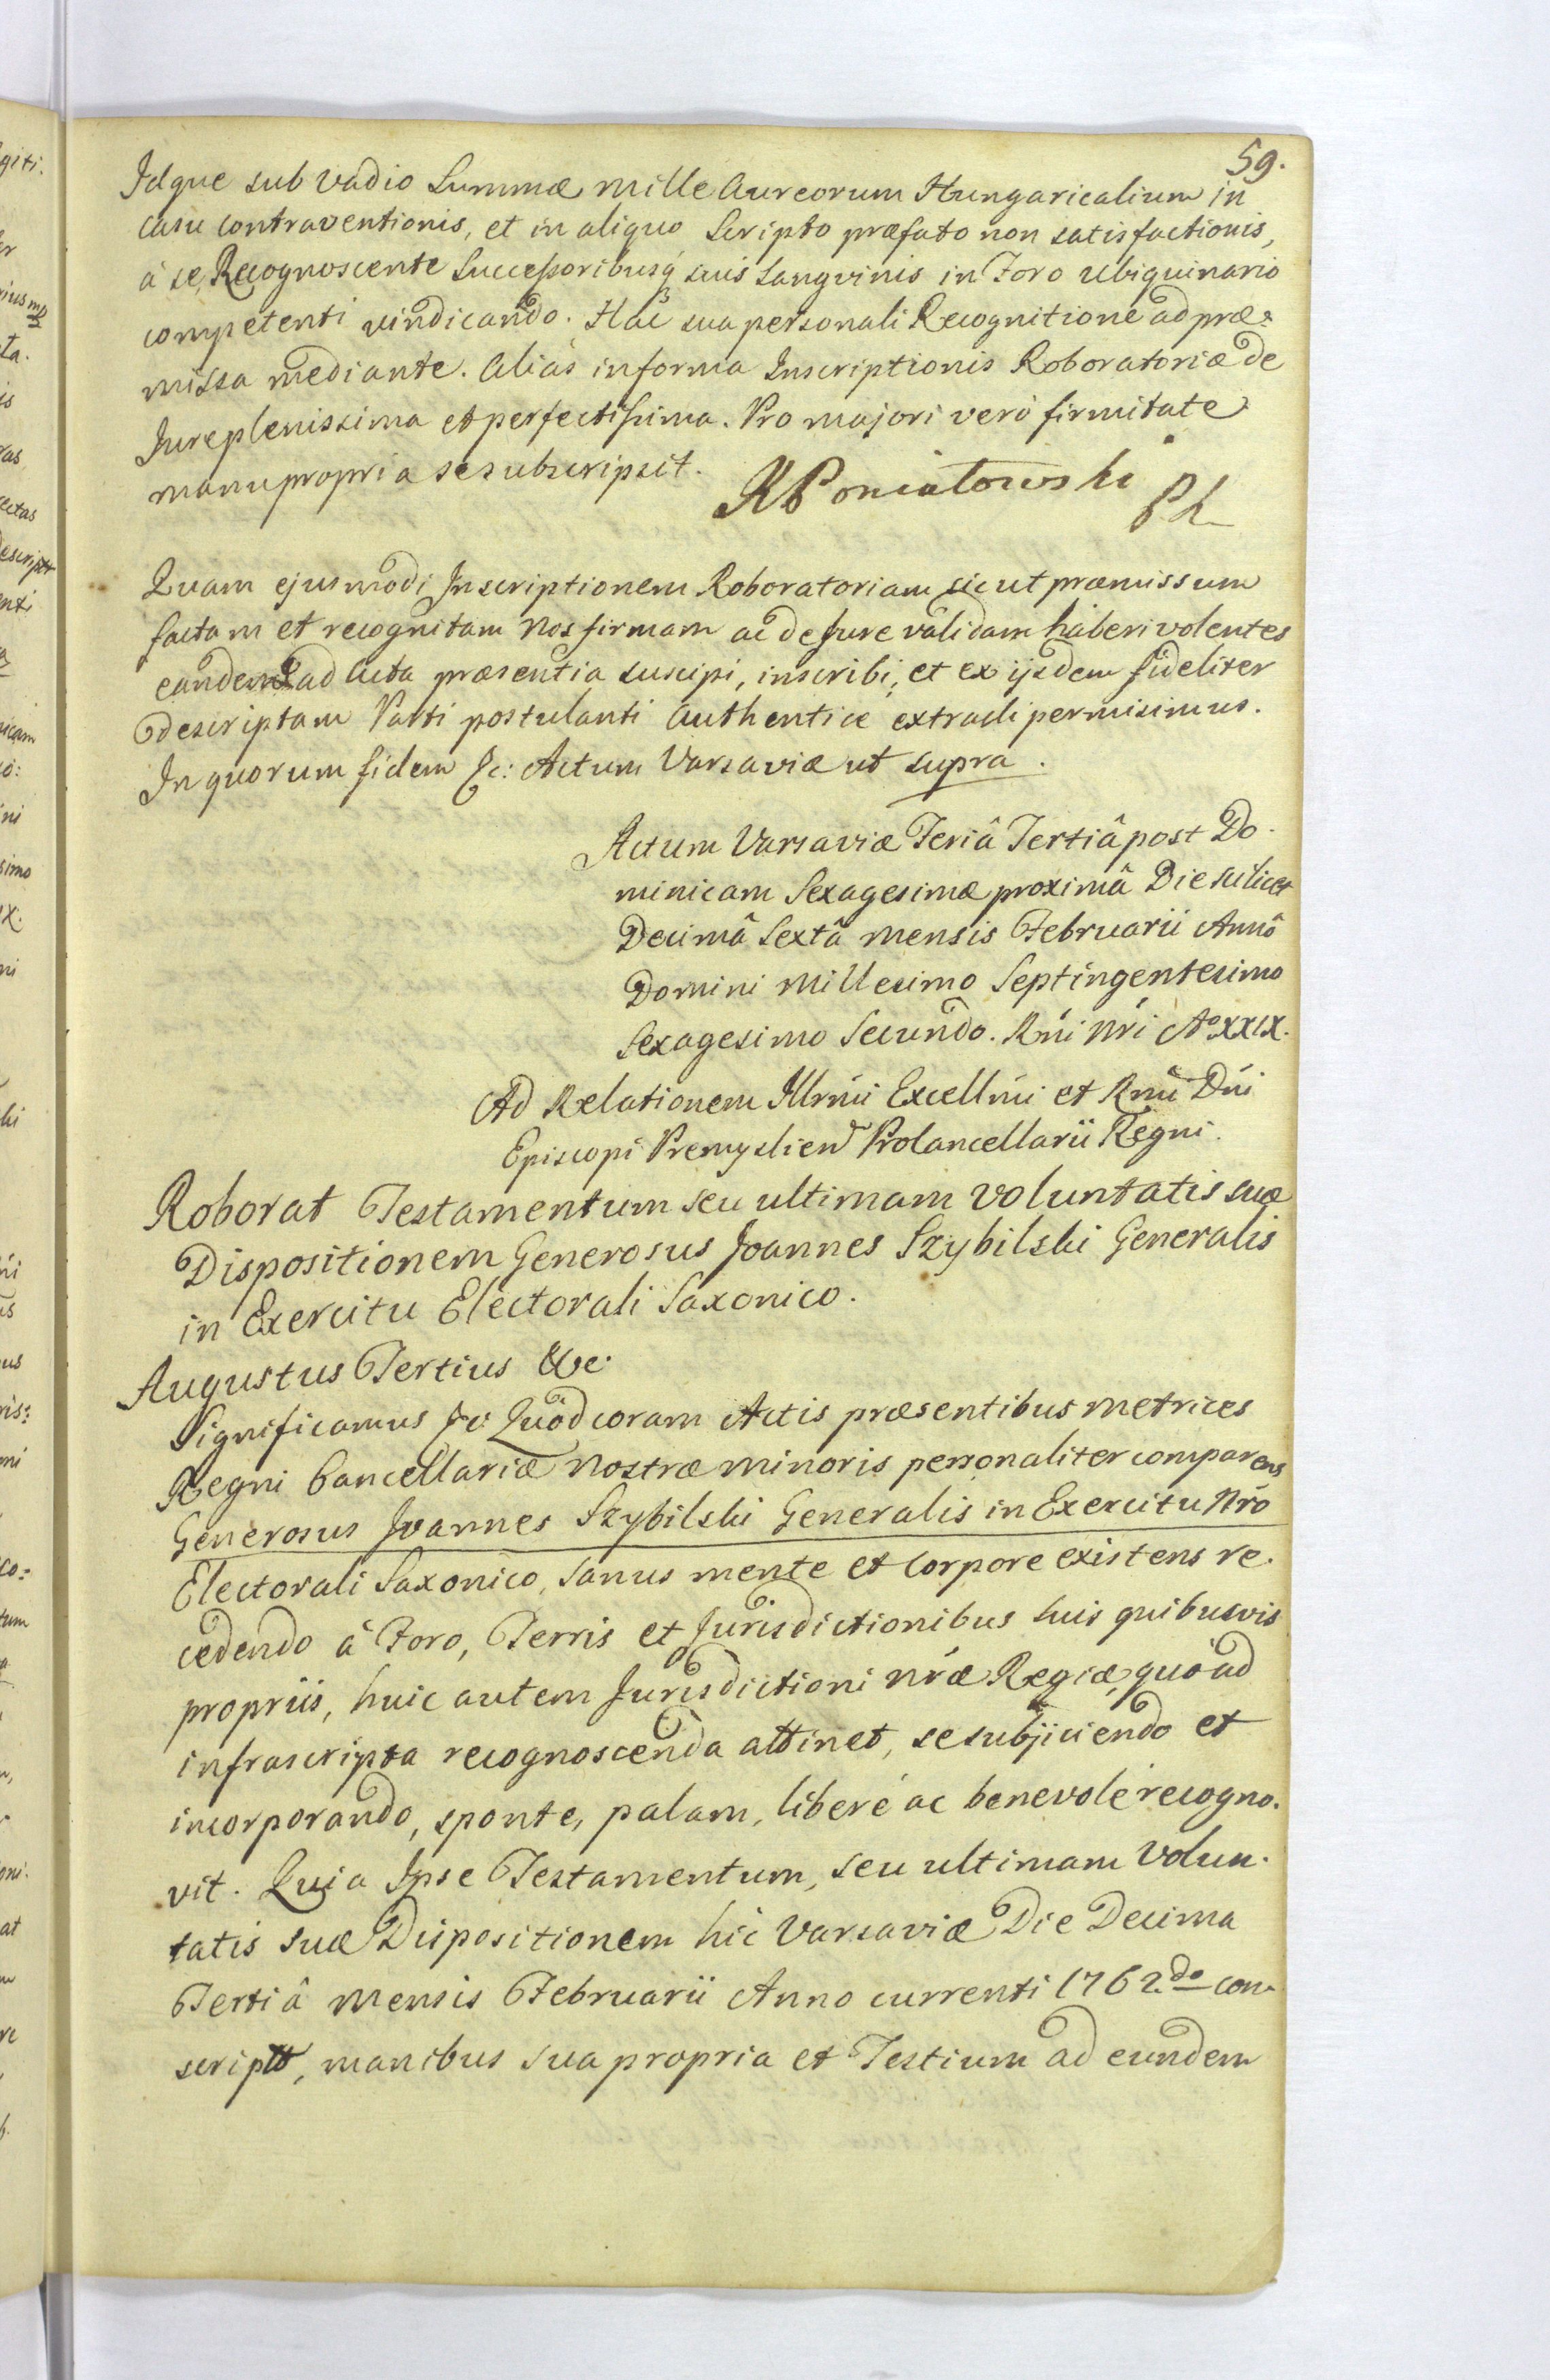 59.
Idque sub vadio Summæ mille Aureorum Hungaricalium in
casu contraventionis, et in aliquo Scripto præfato non satisfactionis,
à se Recognoscente Successoribusq́ suis Sangvinis in Foro ubiquinario
competenti vindicando. Hac sua personali Recognitione ad præ=
missa mediante. Alias in forma Inscriptionis Roboratoriæ de
Jure plenissima et perfectissima. Pro majori verò firmitate
manu propria se subscripsit.
K Poniatowski
Quam ejusmodi Inscriptionem Roboratoriam sicut præmissum
factam et recognitam Nos firmam ac de Jure validam haberi volentes
eandem ad Acta præsentia suscipi, inscribi, et ex ijsdem fideliter
descriptam Parti postulanti Authenticè extradi permisimus.
In quorum fidem &c: Actum Varsaviæ ut supra.
Actum Varsaviæ Feriâ Tertiâ post Do-
minicam Sexagesimæ proximâ Die scilicet
Decimâ Sextâ mensis Februarii Annô
Domini Millesimo Septingentesimo
Sexagesimo Secundo. Rńi Nŕi Aº XXIX.
Ad Relationem Illrńi Excellńi et Rńi Dńi
Episcopi Premyslien Procancellarii Regni.
Roborat Testamentum seu ultimam voluntatis suæ
Dispositionem Generosus Joannes Szybilski Generalis
in Exercitu Electorali Saxonico.
Augustus Tertius &c.
Significamus &c: Quòd coram Actis præsentibus metrices
Regni Cancellariæ Nostræ minoris personaliter comparens
Generosus Joannes Szybilski Generalis in Exercitu Nŕo
Electorali Saxonico, sanus mente et corpore existens re-
cedendo â Foro, Terris et Jurisdictionibus suis quibusvis
propriis, huic autem Jurisdictioni Nŕæ Regiæ, quò ad
infrascripta recognoscenda attinet, se subjiciendo et
incorporando, sponte, palam, liberè ac benevolè recogno-
vit. Quia Ipse Testamentum, seu ultimam Volun-
tatis suæ Dispositionem hic Varsaviæ Die Decima
Tertiâ mensis Februarii Anno currenti 1762.do con-
script, manibus sua propria et Testium ad eundem